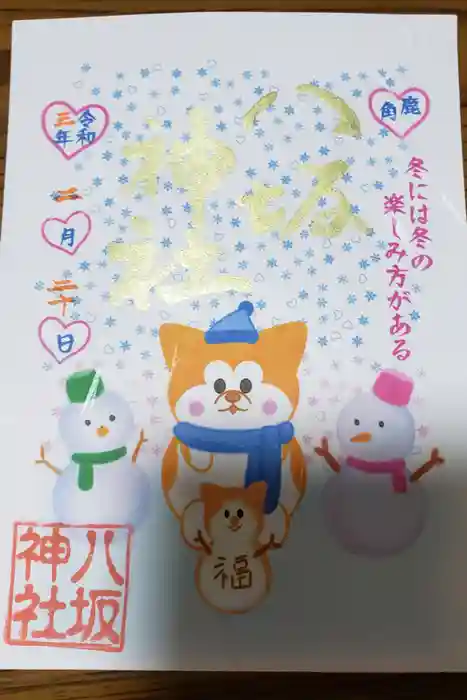 鹿角
冬には冬の
楽しみ方がある
八坂
神社
令和三年
二月
二十日
福
八坂
神社